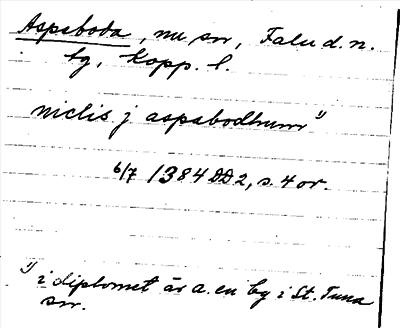 Aspaboda, nu sn, Falu d. n.
tg, Kopp. l.
niclis j aspabodhum 1)
6/7 1384 DD 2, s. 4 or.
1) i diplomet är A. en by i St. Tuna
sn.